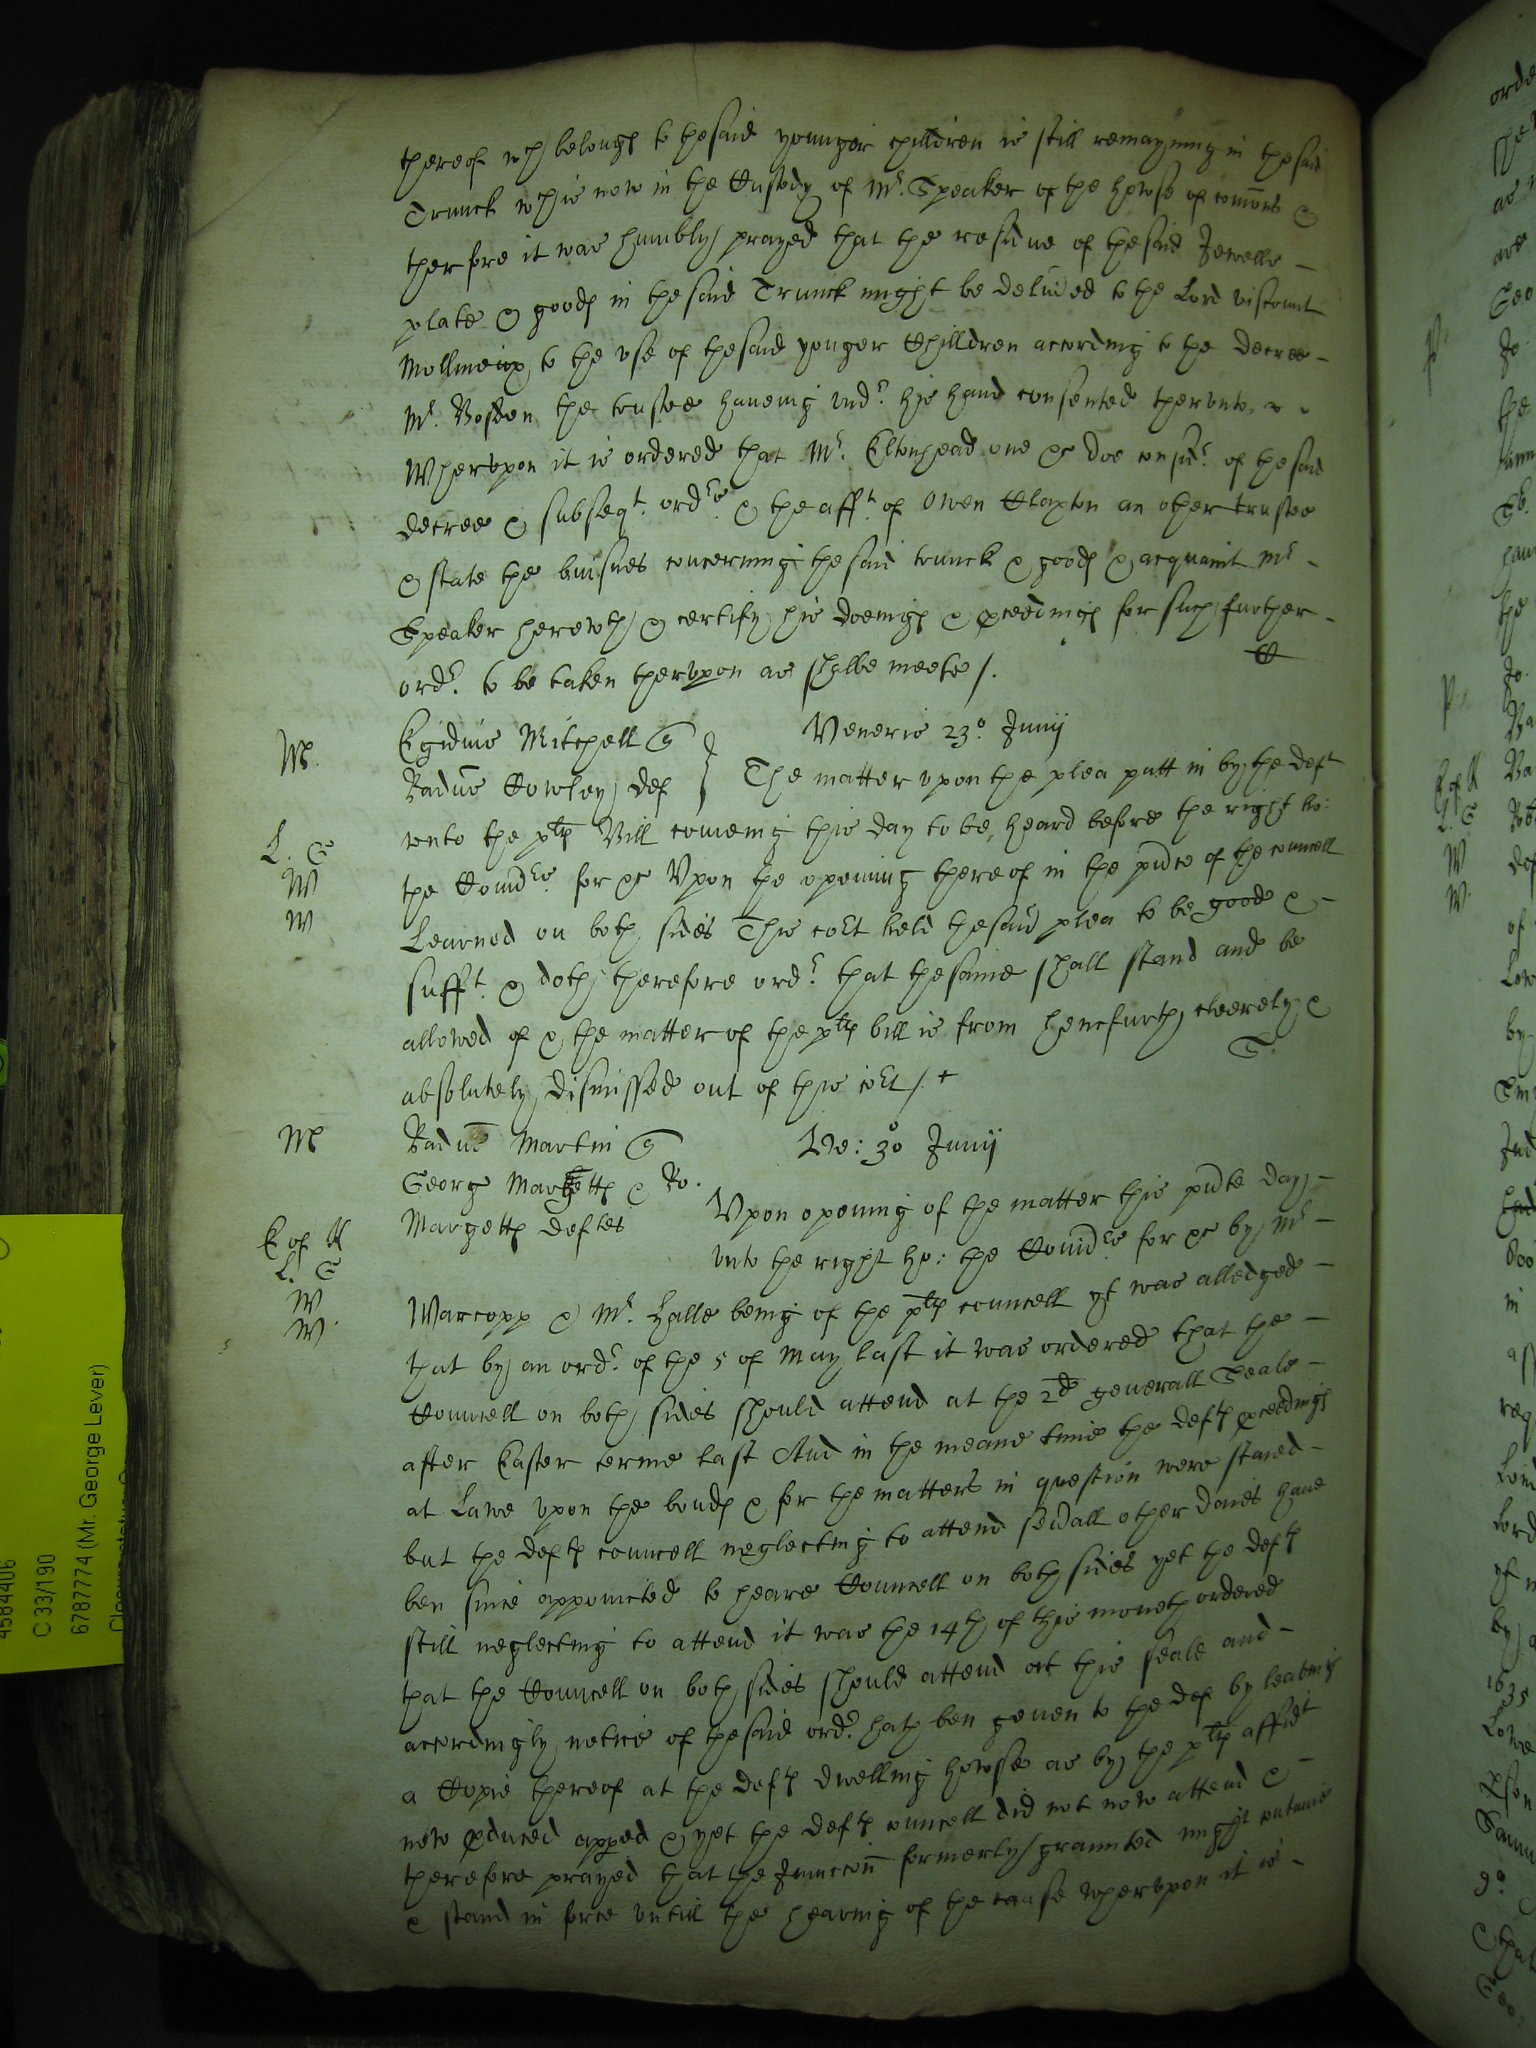 thereof wch belongs to the said younger children is still remayning in the said
Trunck wch is now in the Custody of Mr. Speaker of the howse of comons &
therfore it was humbly prayed that the residue of the said Jewells
plate & goods in the said Trunck might be deliu'ed to the Lord viscount
Mollineux to the use of the said yonger Children according to the decree
Mr. Bosden the trustee haueing und' his hand consented thervnto
Whervpon it is ordered that Mr. Eltonhead one &c doe consid' of the said
decree & subseqt. ord's & the afft. of Owen Claxton an other trustee
& state the buisnes concerning the said trunck & goods & acquaint Mr
Speaker herewth & certify his doeings & pceedings for such further
ord'. to be taken thervpon as shalbe meete /.
Egidius Mitchell q
Veneris 23o. Junij
M.
Radus Cowley def
The matter vpon the plea putt in by the deft
L. G
vnto the plts Bill comeing this day to be heard before the right ho:
W
the Comrs. for &c Vpon the opening thereof in the pñce of the councell
W
Learned on both sides This coʳt held the said plea to be good &
sufft. & doth therefore ord' that the same shall stand and be
allowed of & the matter of the plts bill is from hencfurth cleerely &
absolutely dismissed out of this coʳt /. +
M
Radus Martin q
Ve: 30 Junij
George Margetts & Ro.
Vpon opening of the matter this pñte day
Margetts deftes
E of K
vnto the right ho: the Comrs for &c by Mr
L. G
W
Warcopp & Mr. Halle being of the plts councell yt was alledged
W.
that by an ord'. of the 5 of May last it was ordered that the
Councell on both sides should attend at the 2d generall Seale
after Easter terme last And in the meane time the defts pceedings
at Lawe vpon the bonds & for the matters in question were staied
but the defts councell neglecting to attend seu'all other daies haue
ben since appointed to heare Councell on both sides yet the defts
still neglecting to attend it was the 14th of this moneth ordered
that the Councell on both sides should attend at this seale and
accordingly notice of the said ord'. hath ben geuen to the def by leaving
a Copie thereof at the defts dwelling howse as by the plts affidt
now pduced apped & yet the defts councell did not now attend &
therefore prayed that the Junccon formerly graunted might contynue
& stand in force vntill the hearing of the cause whervpon it is
C 33/190
6787774 (Mr. George Lever)